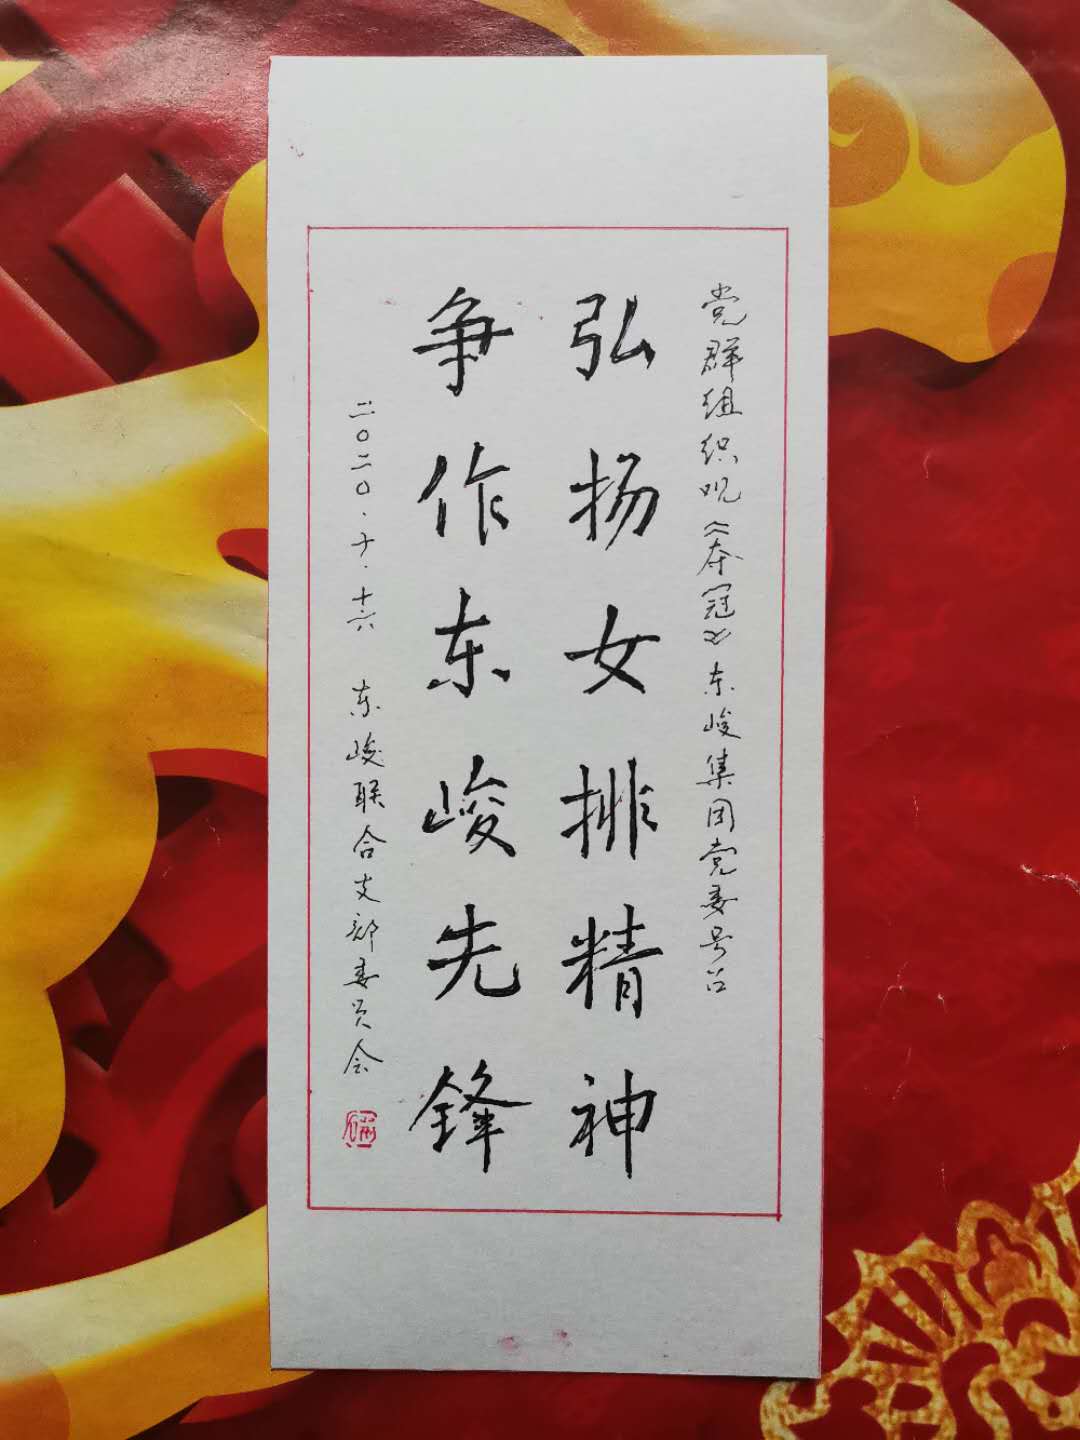 党群组织观《夺冠》东峻集团党委号召
弘扬女排精神
争作东峻先锋
二〇二〇·十·十六 东峻联合支部委员会